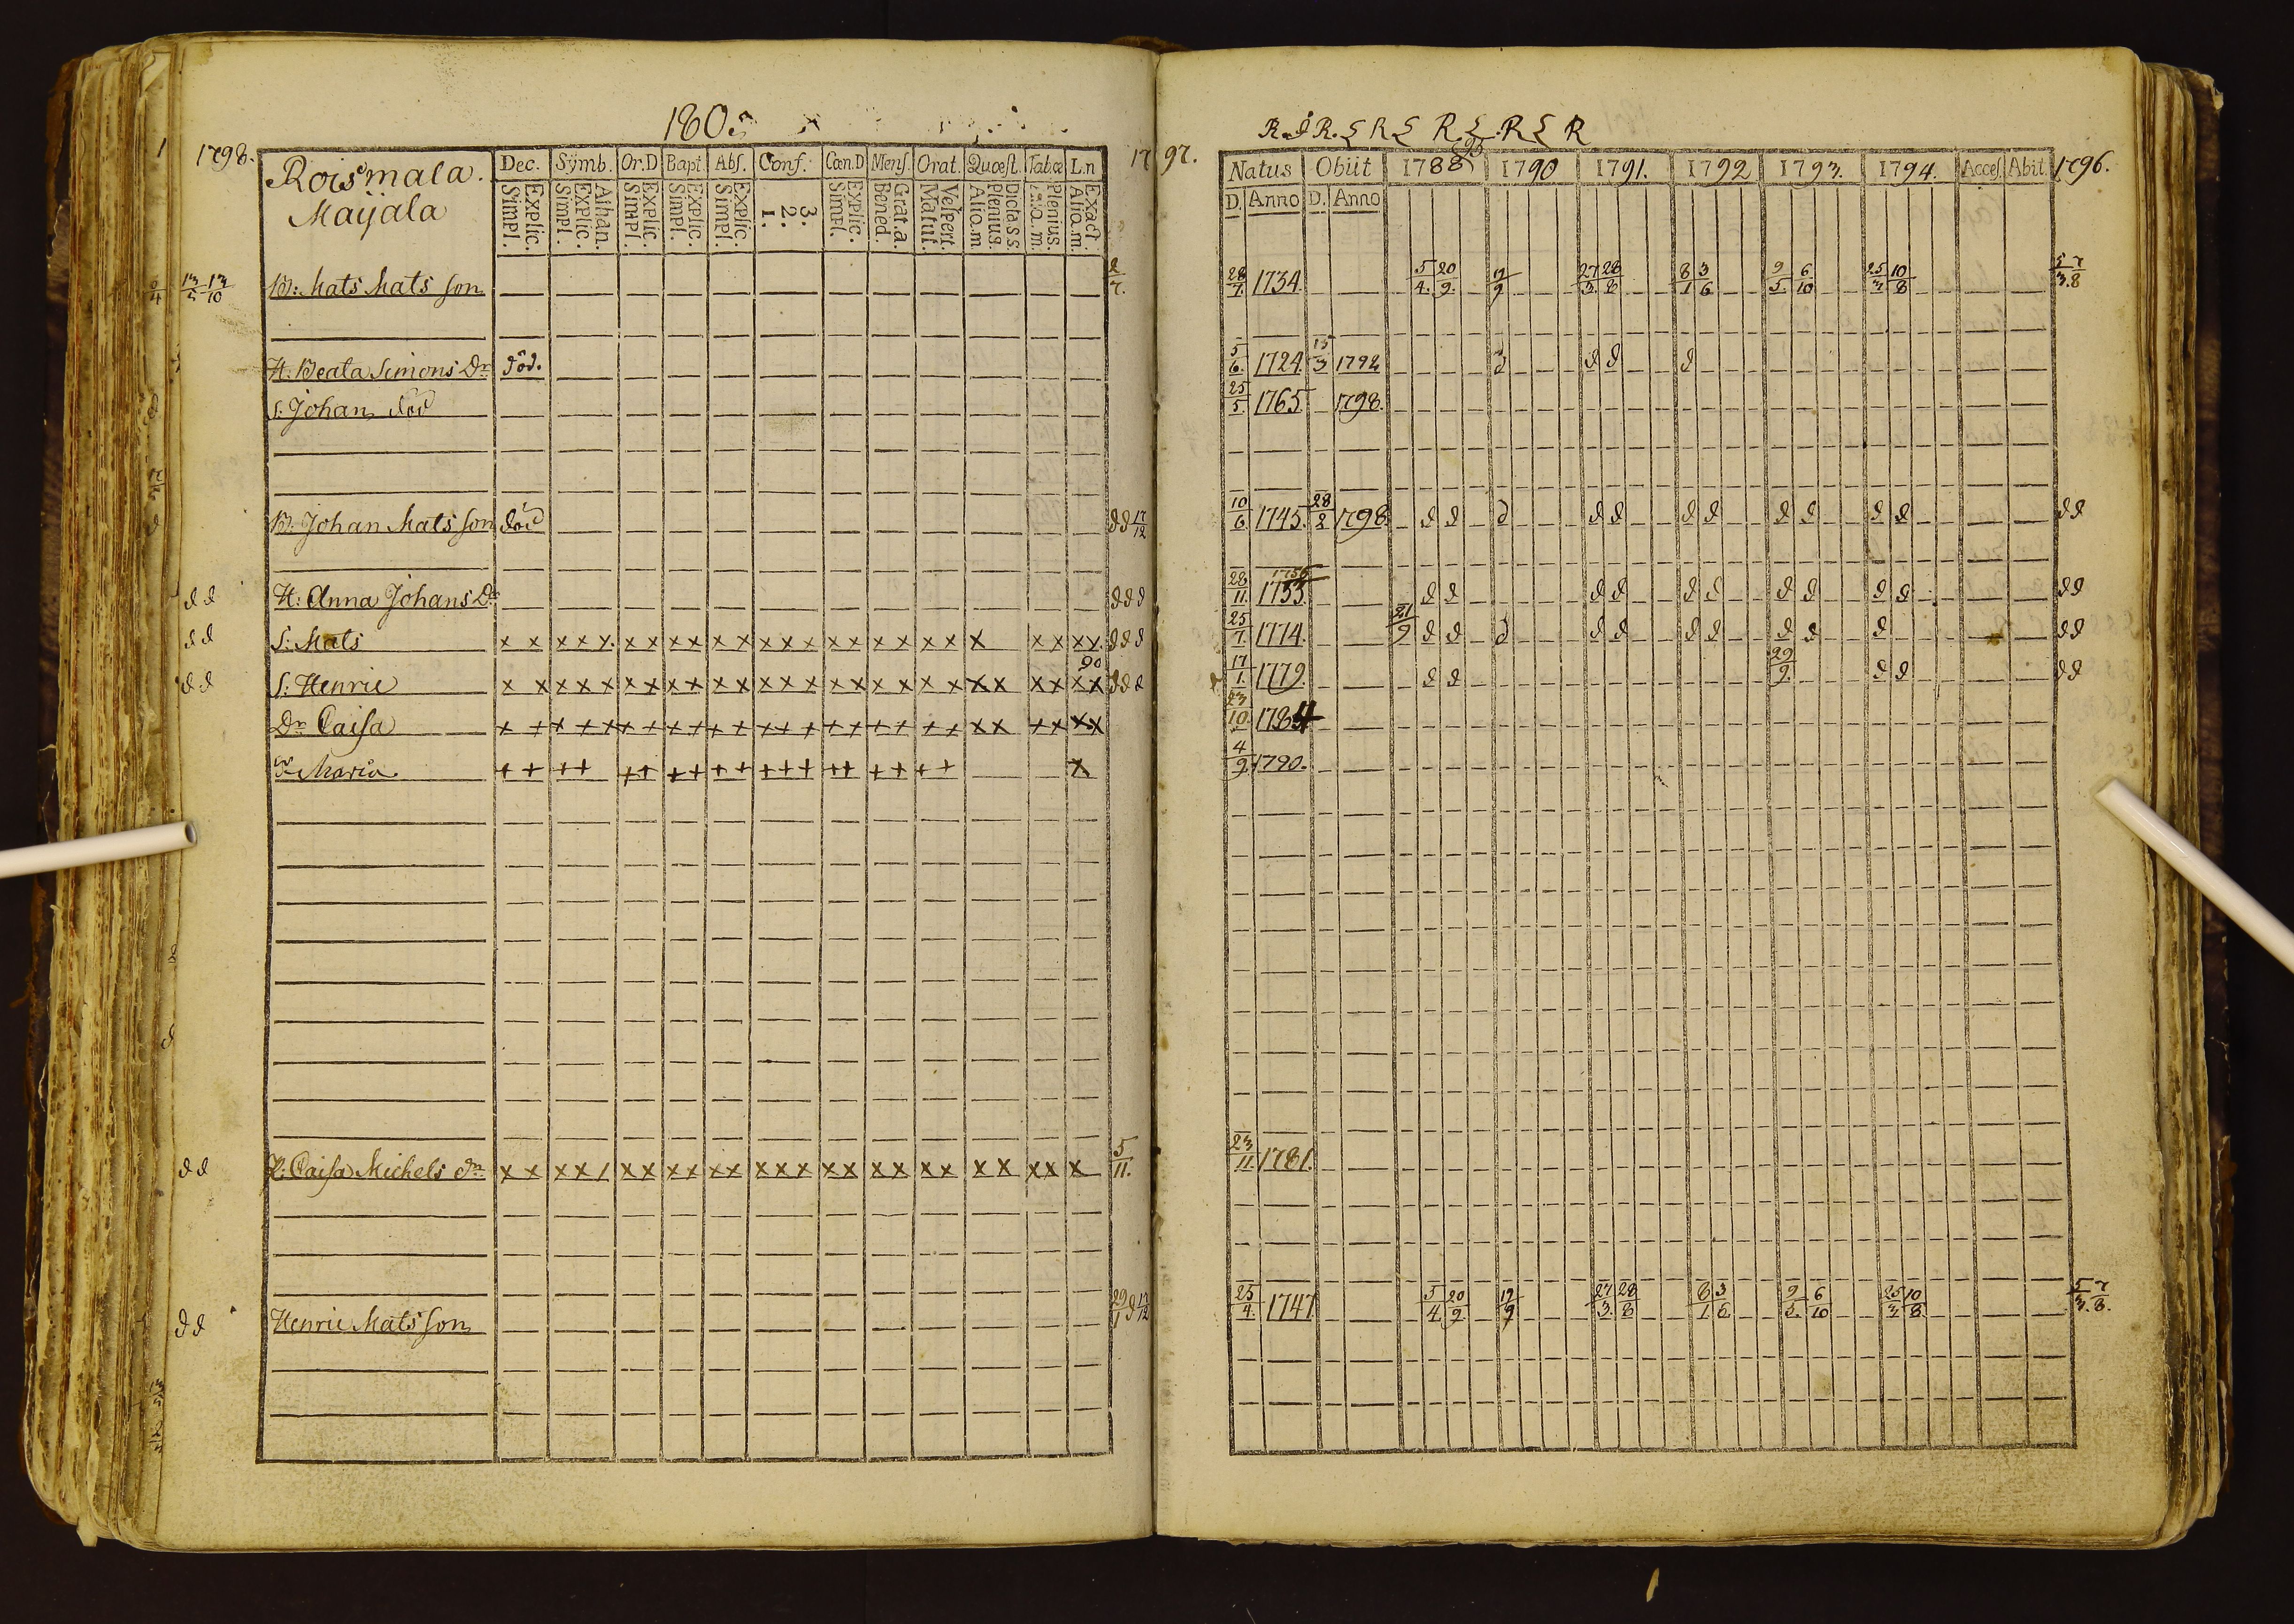 1805
1798.
Roismala.
Maijala
Dec. Symb. Or.D Bapt. Abs. Conf. Cœn.D Mens. Orat. Quæst. Tabæ L.n
Explic. Simpl. Athan. Explic. Simpl. Explic. Simpl. Explic. Simpl. Explic. Simpl. 3. 2. 1. Explic. Simpl. Grat.a. Bened. Vespert. Matut. Dicta s.s. Plenius. Alio.m Plenius. Alio.m. Exact. Alio.m.
17 97.
13/5 13/10 B: Mats Mats son 2/7.
H. Beata Simons Dr död.
S: Johan död
B: Johan Mats son död d d 17/12
d d H: Anna Johans Dr d d d
d d S: Mats x x x x x x x x x x x x x x x x x x x x x x x x x d d d
90
d d S: Henric x x x x x x x x x x x x x x x x x x x x x x x x x x d d d
Dr Caisa + + + + + + + + + + + + + + + + + + + + x x + + x x
Dr Maria + + + + + + + + + + + + + + + + + + + x
d d P: Caisa Michels dr x x x x / x x x x x x x x x x x x x x x x x x x x 5/11.
d d Henric Mats son 29/1 d 17/12
R. d R. S R S R. S. R S R
95
Natus Obiit 1788 1790 1791. 1792 1793. 1794. Acces. Abit. 1796.
D. Anno D. Anno
28/7. 1734. 5/4. 20/9. 12/9 27/3. 28/8 8/1 3/6 9/5. 6/10 25/3 10/8 5/3. 7/8
5/6. 1724. 15/3 1792 d d d d
25/5. 1765. 1798.
10/6 1745. 28/2 1798. d d d d d d d d d d d d d
1756
28/11. 1753. d d d d d d d d d d d d
25/7. 1774. 21/9 d d d d d d d d d d d d
17/1. 1779. d d 29/9. d d d d
23/10. 1784
4/9. 1790.
23/11. 1781.
25/4. 1747 5/4. 20/9. 12/9 27/3. 28/8 8/1. 3/6 9/5. 6/10 25/3. 10/8. 5/3. 7/8.